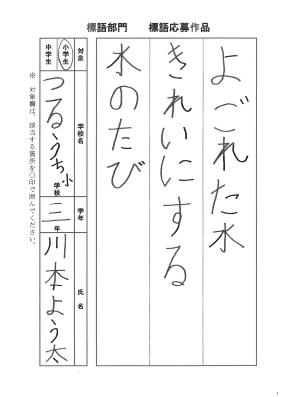 標語部門 標語応募作品
よごれた水
きれいにする
水のたび
対象 小学生 中学生
学校名 つるうち小学校
学年 三年
氏名 川本よう太
※ 対象欄は、該当する箇所を〇印で囲んでください。